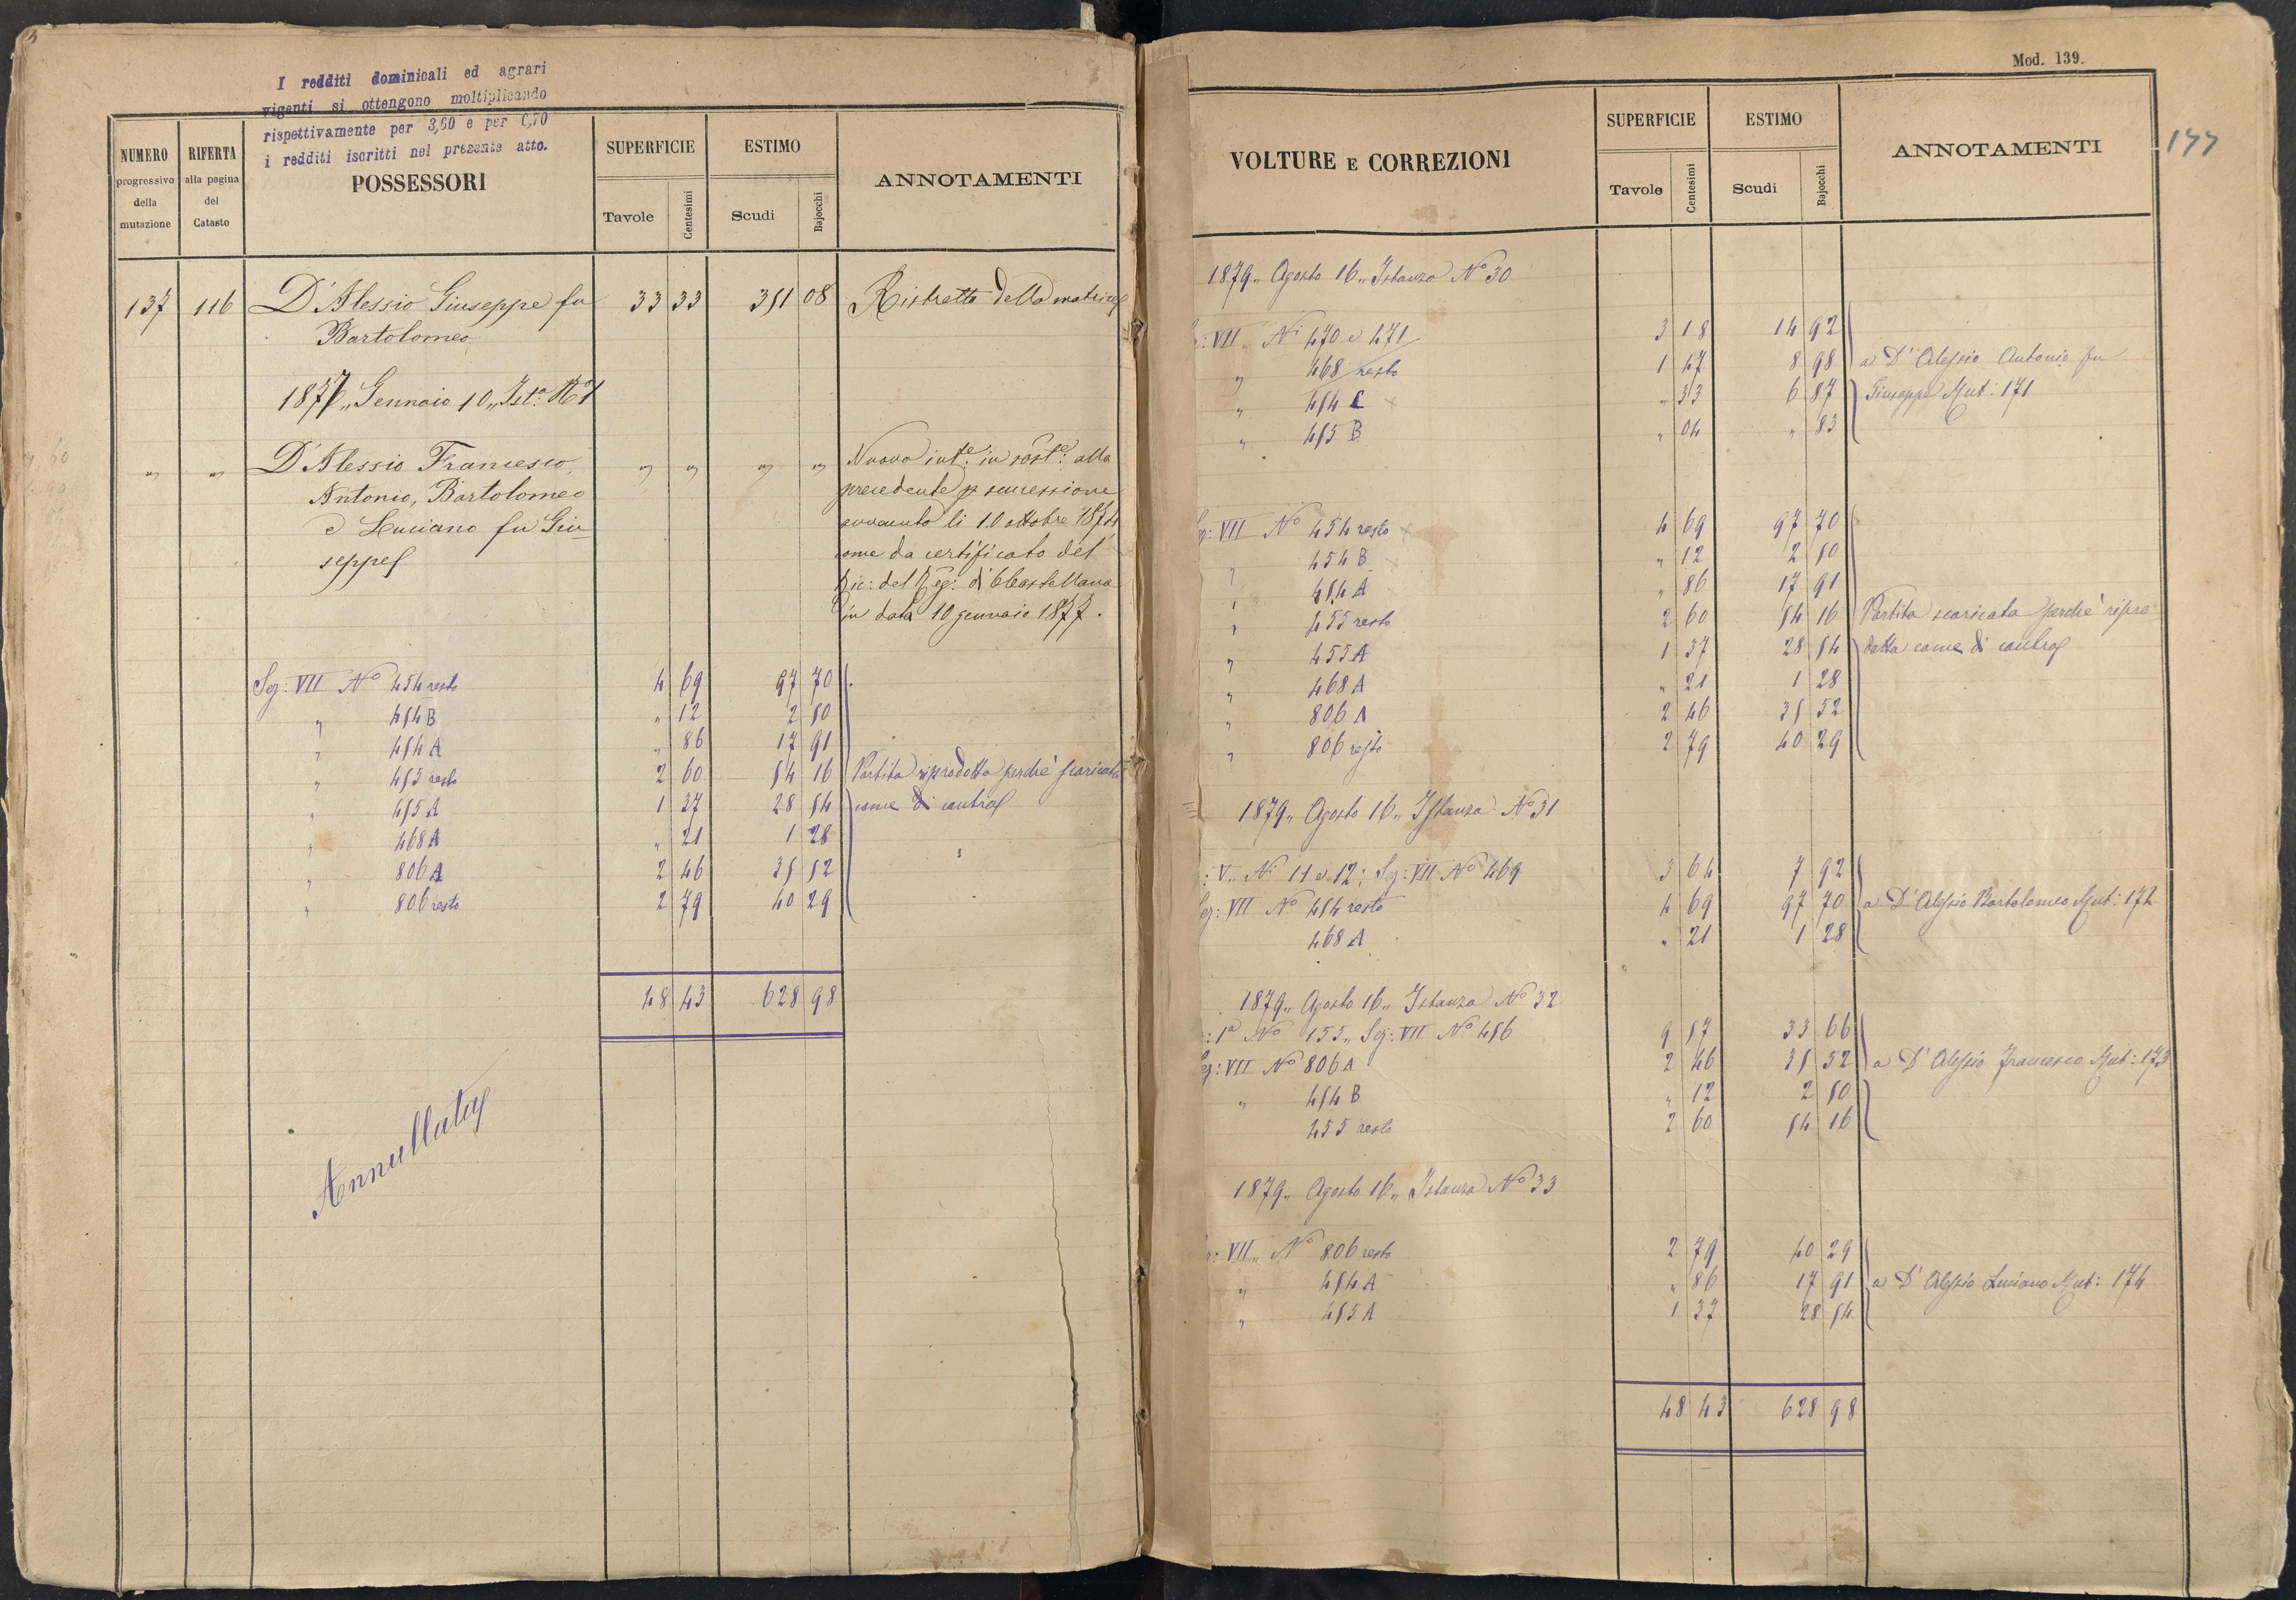 I redditi dominicali ed agrari
vigenti si ottengono moltiplicando
rispettivamente per 3,60 e per 0,70
i redditi iscritti nel presente atto.
NUMERO progressivo della mutazione
RIFERTA alla pagina del Catasto
POSSESSORI
SUPERFICIE
Tavole Centesimi
ESTIMO
Scudi Bajocchi
ANNOTAMENTI
137 116 D'Alessio Giuseppe fu 33 33 351 08 Ristretto della matrice
Bartolomeo
1877,, Gennaio 10,, Ist.a N.o 1
" " D'Alessio Francesco, " " " " Nuovo int.e in sost.e: alla
Antonio, Bartolomeo precedente p successione
e Luciano fu Giu- avvenuta li 10 ottobre 1874
seppe come da certificato del
Ric: del Reg: di Castellana
in data 10 gennaio 1877.
Sez: VII No 454 resto 4 69 97 70
" 454 B " 12 2 50
" 454 A " 86 17 91
" 455 resto 2 60 54 16 Partita riprodotta perchè scaricata
" 455 A 1 37 28 54 come di contro
" 468 A " 21 1 28
" 806 A 2 46 35 52
" 806 resto 2 79 40 29
48 43 628 98
Annullata
Mod. 139.
177
VOLTURE E CORREZIONI
SUPERFICIE
Tavole Centesimi
ESTIMO
Scudi Bajocchi
ANNOTAMENTI
1879,, Agosto 16,, Istanza No 30
: VII " Ni 470 e 471 3 18 14 92
" 468 resto 1 47 8 98 a D'Alessio Antonio fu
" 454 C " 33 6 87 Giuseppe Mut: 171
" 455 B " 04 " 83
: VII No 454 resto 4 69 97 70
" 454 B " 12 2 50
" 454 A " 86 17 91
" 455 resto 2 60 54 16 Partita scaricata perchè ripro
" 455 A 1 37 28 54 dotta come di contro
" 468 A " 21 1 28
" 806 A 2 46 35 52
" 806 resto 2 79 40 29
1879,, Agosto 16,, Istanza No 31
: V,, Ni 11 e 12; Sez: VII No 469 3 64 7 92
: VII No 454 resto 4 69 97 70 a D'Alessio Bartolomeo Mut: 172
468 A " 21 1 28
1879,, Agosto 16,, Istanza No 32
: 1a No 155,, Sez: VII No 456 9 57 33 66
: VII No 806 A 2 46 35 52 a D'Alessio Francesco Mut: 173
" 454 B " 12 2 50
455 resto 2 60 54 16
1879,, Agosto 16,, Istanza No 33
: VII,, No 806 resto 2 79 40 29
" 454 A " 86 17 91 a D'Alessio Luciano Mut: 174
" 455 A 1 37 28 54
48 43 628 98